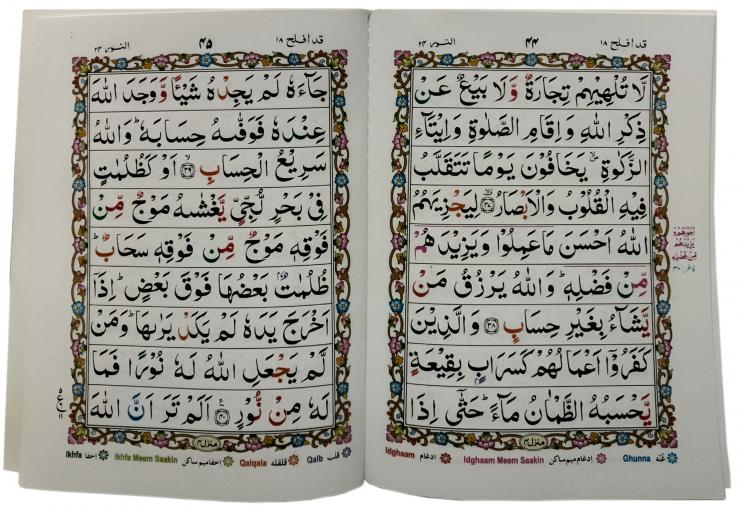 قد افلح ١٨
٤٤
النور ٢٤
لَّا تُلْهِيْهِمْ تِجَارَةٌ وَّلَا بَيْعٌ عَنْ
ذِكْرِ اللّٰهِ وَاِقَامِ الصَّلٰوةِ وَاِيْتَآءِ
الزَّكٰوةِ ۙ يَخَافُوْنَ يَوْمًا تَتَقَلَّبُ
فِيْهِ الْقُلُوْبُ وَالْاَبْصَارُ ۙ لِيَجْزِيَهُمُ
اللّٰهُ اَحْسَنَ مَا عَمِلُوْا وَيَزِيْدَهُمْ
مِّنْ فَضْلِهٖ ؕ وَاللّٰهُ يَرْزُقُ مَنْ
يَّشَآءُ بِغَيْرِ حِسَابٍ ٣٨ وَالَّذِيْنَ
كَفَرُوْۤا اَعْمَالُهُمْ كَسَرَابٍۭ بِقِيْعَةٍ
يَّحْسَبُهُ الظَّمْاٰنُ مَآءً ؕ حَتّٰۤى اِذَا
منزل ٤
اُجُوْرَهُمْ وَ
يَزِيْدَهُمْ
مِّنْ فَضْلِهٖ
فاطر ٣٠
Idghaam ادغام
Idghaam Meem Saakin ادغام ميم ساكن
Ghunna غنه
قد افلح ١٨
٤٥
النور ٢٤
جَآءَهٗ لَمْ يَجِدْهُ شَيْـًٔا وَّوَجَدَ اللّٰهَ
عِنْدَهٗ فَوَفّٰىهُ حِسَابَهٗ ؕ وَاللّٰهُ
سَرِيْعُ الْحِسَابِ ۙ ٣٩ اَوْ كَظُلُمٰتٍ
فِيْ بَحْرٍ لُّجِّيٍّ يَّغْشٰىهُ مَوْجٌ مِّنْ
فَوْقِهٖ مَوْجٌ مِّنْ فَوْقِهٖ سَحَابٌ ؕ
ظُلُمٰتٌۢ بَعْضُهَا فَوْقَ بَعْضٍ ؕ اِذَاۤ
اَخْرَجَ يَدَهٗ لَمْ يَكَدْ يَرٰىهَا ؕ وَمَنْ
لَّمْ يَجْعَلِ اللّٰهُ لَهٗ نُوْرًا فَمَا
لَهٗ مِنْ نُّوْرٍ ٤٠ اَلَمْ تَرَ اَنَّ اللّٰهَ
منزل ٤
Ikhfa اخفا
Ikhfa Meem Saakin اخفا ميم ساكن
Qalqala قلقله
Qalb قلب